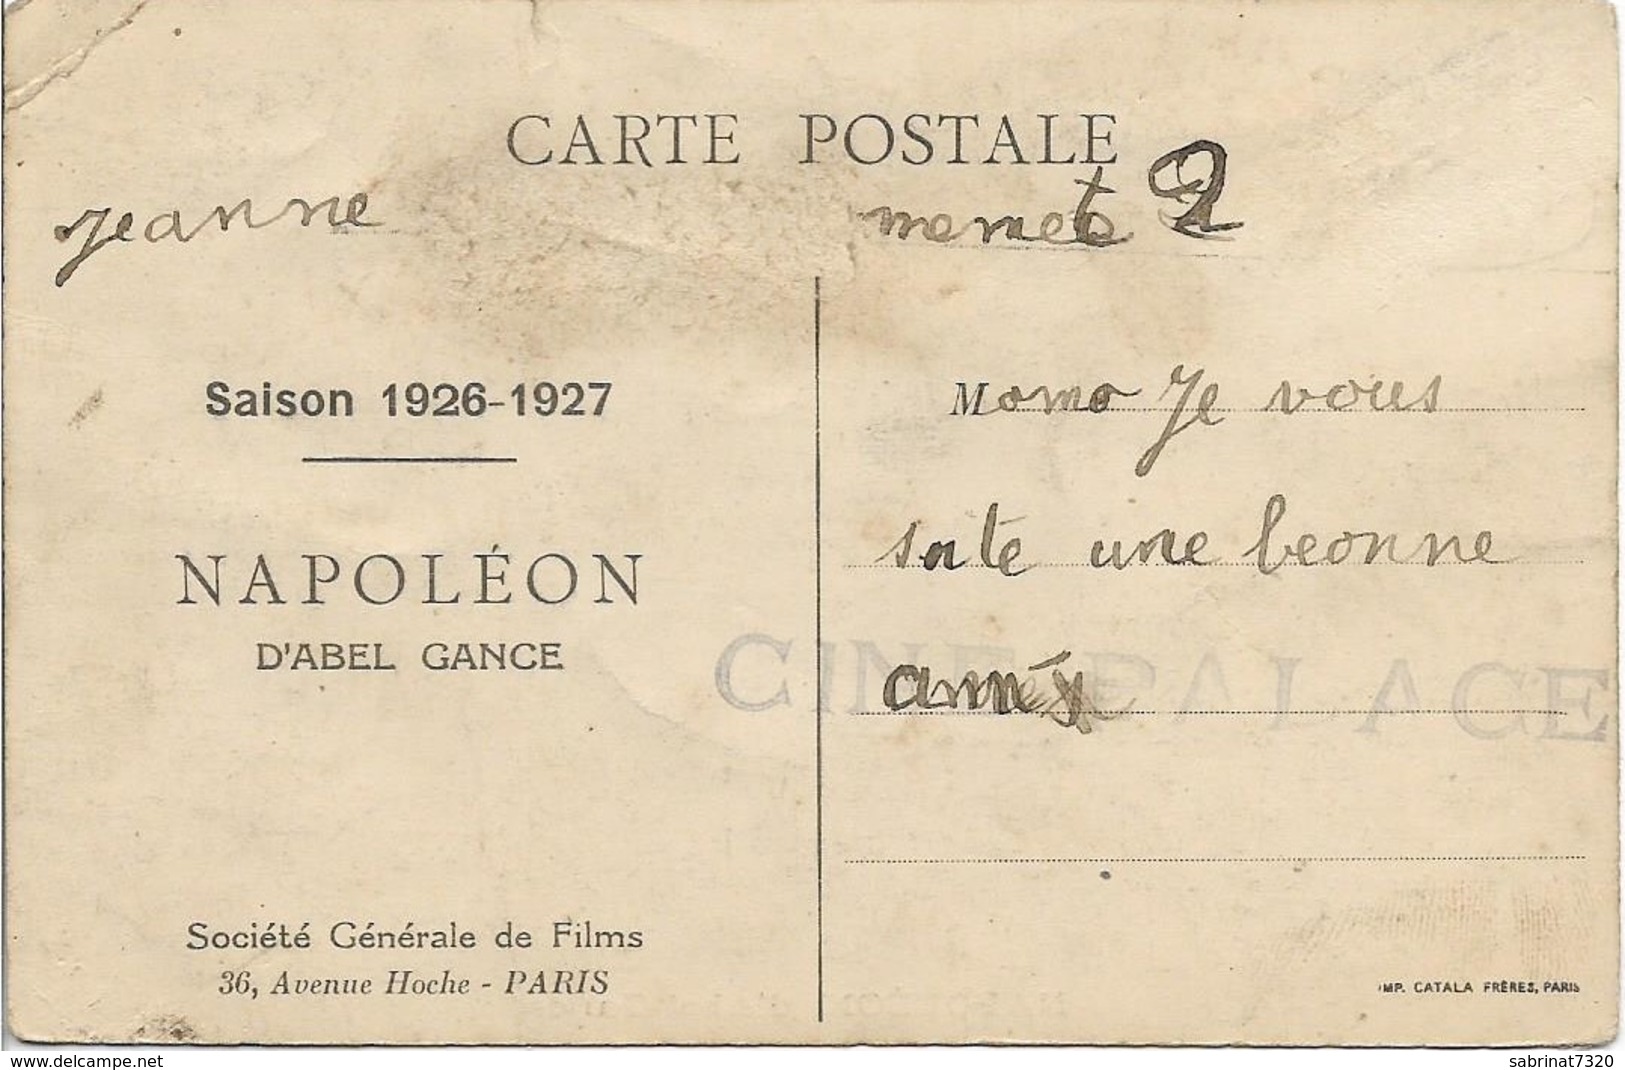 CARTE POSTALE
Jeanne
memete 2
Saison 1926-1927
NAPOLÉON
D'ABEL GANCE
Société Générale de Films
36, Avenue Hoche - PARIS
Momo Je vous
sate une beonne
anné
CINÉ PALACE
IMP. CATALA FRÈRES, PARIS
www.delcampe.net
sabrinat7320